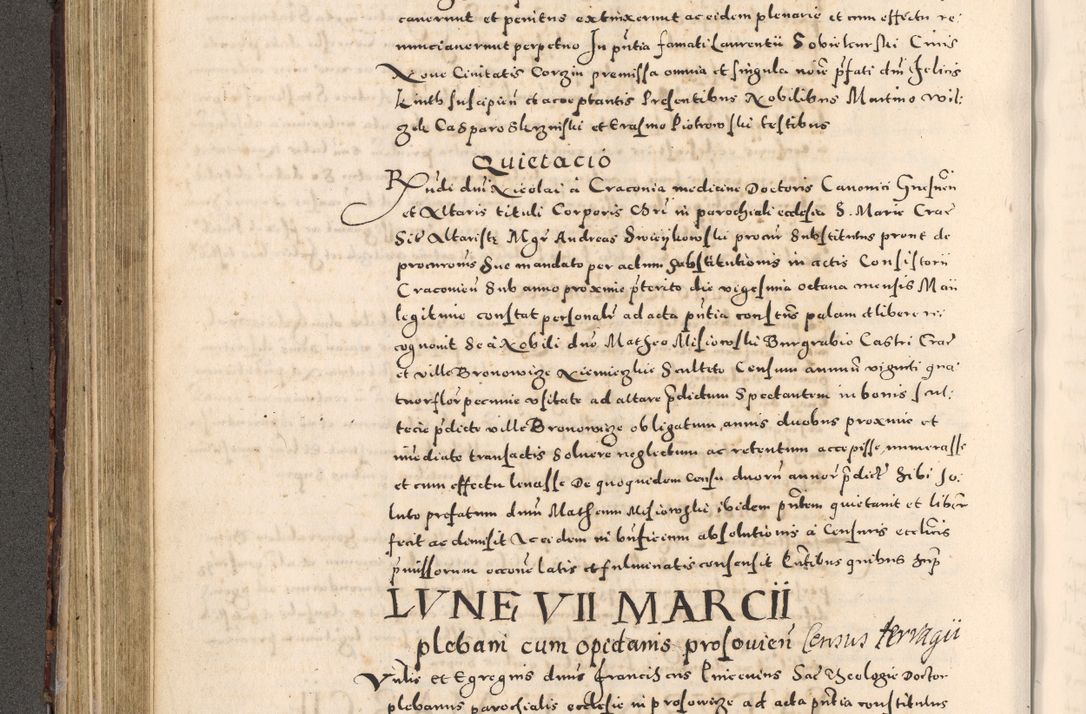 cauerunt et penitus extinxerunt ac eidem plenarie et cum effectu re¬
nunciauerunt perpetuo In pñtia famati Laurentii Sobiekurski Ciuis
Noue Ciuitatis Corzin premissa omnia et singula noīe p̃fati dnī Felicis
suscipieñ et acceptantis Presentibus Nobilibus Martino Wil¬
Casparo et Erasmo Piotrowski testibus
Quietacio
R̃ndi dnī Nicolai à Craconia medicine Doctoris Canonici Gnesneñ
et Altaris tituli Corporis Chrī in parochiali ecclesia S. Marie Crac̃
Sit Altariste Mgr̃ Andreas procur̃ Substitutus prout de
procuronis sue mandato per actum substitutionis in actis Consistorii
Cracouieñ sub anno proxime p̃terito die vigesima octaua mensis Maii
legitime constat personalr̃ ad acta pñtia constitũs palam et libere re¬
cognouit se à Nobili dnō Matheo Misiowski Burgrabio Castri Crac̃
et ville Bronowicze Niemieczkie Sculteto Censum annuũ viginti qua¬
tuor flor̃ pecunie vsitate ad altare p̃dictum spectantem in bonis scul¬
tecie p̃dicte ville Bronowicze obligatum annis duobus proxime et
immediate transactis soluere neglectum ac retentum accepisse, numerasse
et cum effectu leuasse De quoquidem Censu duorũ annor̃ p̃dict̃ sibi so¬
luto prefatum dnūm Matheum Misiowski, ibidem p̃ntem quietauit et liber̃
fecit ac demisit Ac eidem in bñficium absolutionis à Censuris ecclīcis
p̃missorum occoñe latis et fulminatis consensit quibus sup̃
LVNE VII MARCII
plebani cum opidanis prosouieñ Census terragii
Vñlis et Egregius dnūs Franciscus Sac̃ Theologie Doctor
plebanus parochialis ecclesie in prosowicze ad acta pñtia constitutus